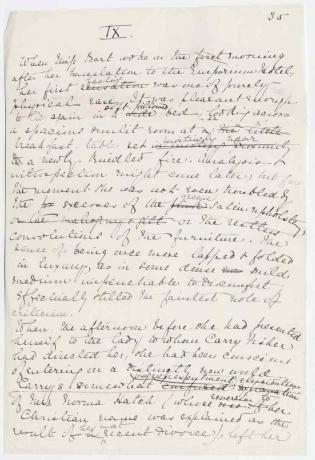 35
IX.
When Miss Bart woke on the first morning
after her translation to the Emporium Hotel,
her first feeling was one of purely
physical ease. It was pleasant enough
to lie again in a soft bed, looking across
a spacious sunlit room at a
breakfast-table set near
to a newly-kindled fire. Analysis &
introspection might come later; but for
the moment she was not even troubled by
the excesses of the upholstery,
or the restless
convolutions of the furniture. The
sense of being once more lapped & folded
in luxury, as in some dense mild
medium impenetrable to discomfort,
effectually stilled the faintest note of
criticism.
When, the afternoon before, she had presented
herself to the lady to whom Carry Fisher
had directed her, she had been conscious
of entering on a distinctly new world.
Carry's somewhat
of Mrs. Norma Hatch (whose reversion to her
Christian name was explained as the
result of her recent divorce), left her